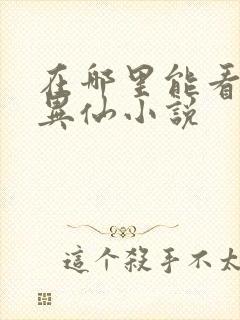 在哪里能看
異仙小說
這个殺手不太